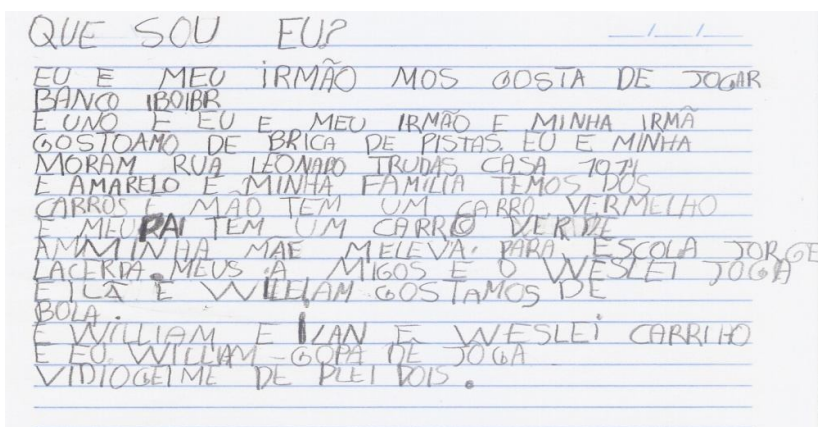 QUE SOU EU?
EU E MEU IRMÃO MOS GOSTA DE JOGAR
BANCO IBOIBR
E UNO E EU E MEU IRMÃO E MINHA IRMÃ
GOSTOAMO DE BRICA DE PISTAS. EU E MINHA
MORAM RUA LEONADO TRUDAS CASA 1071
E AMARELO E MINHA FAMILIA TEMOS DOS
CARROS E MÃO TEM UM CARRO VERMELHO
E MEU PAI TEM UM CARRO VERDE
AMMINHA MÃE MELEVA. PARA ESCOLA JORGE
LACERDA. MEUS A MIGOS E O WESLEI JOGA
E ILÃ E WILLIAM GOSTAMOS DE
BOLA.
E WILLIAM E ILAN E WESLEI CARRIHO
E EU WILLIAM - GOPA DE JOGA
VIDIOGEIME DE PLEI DOIS.